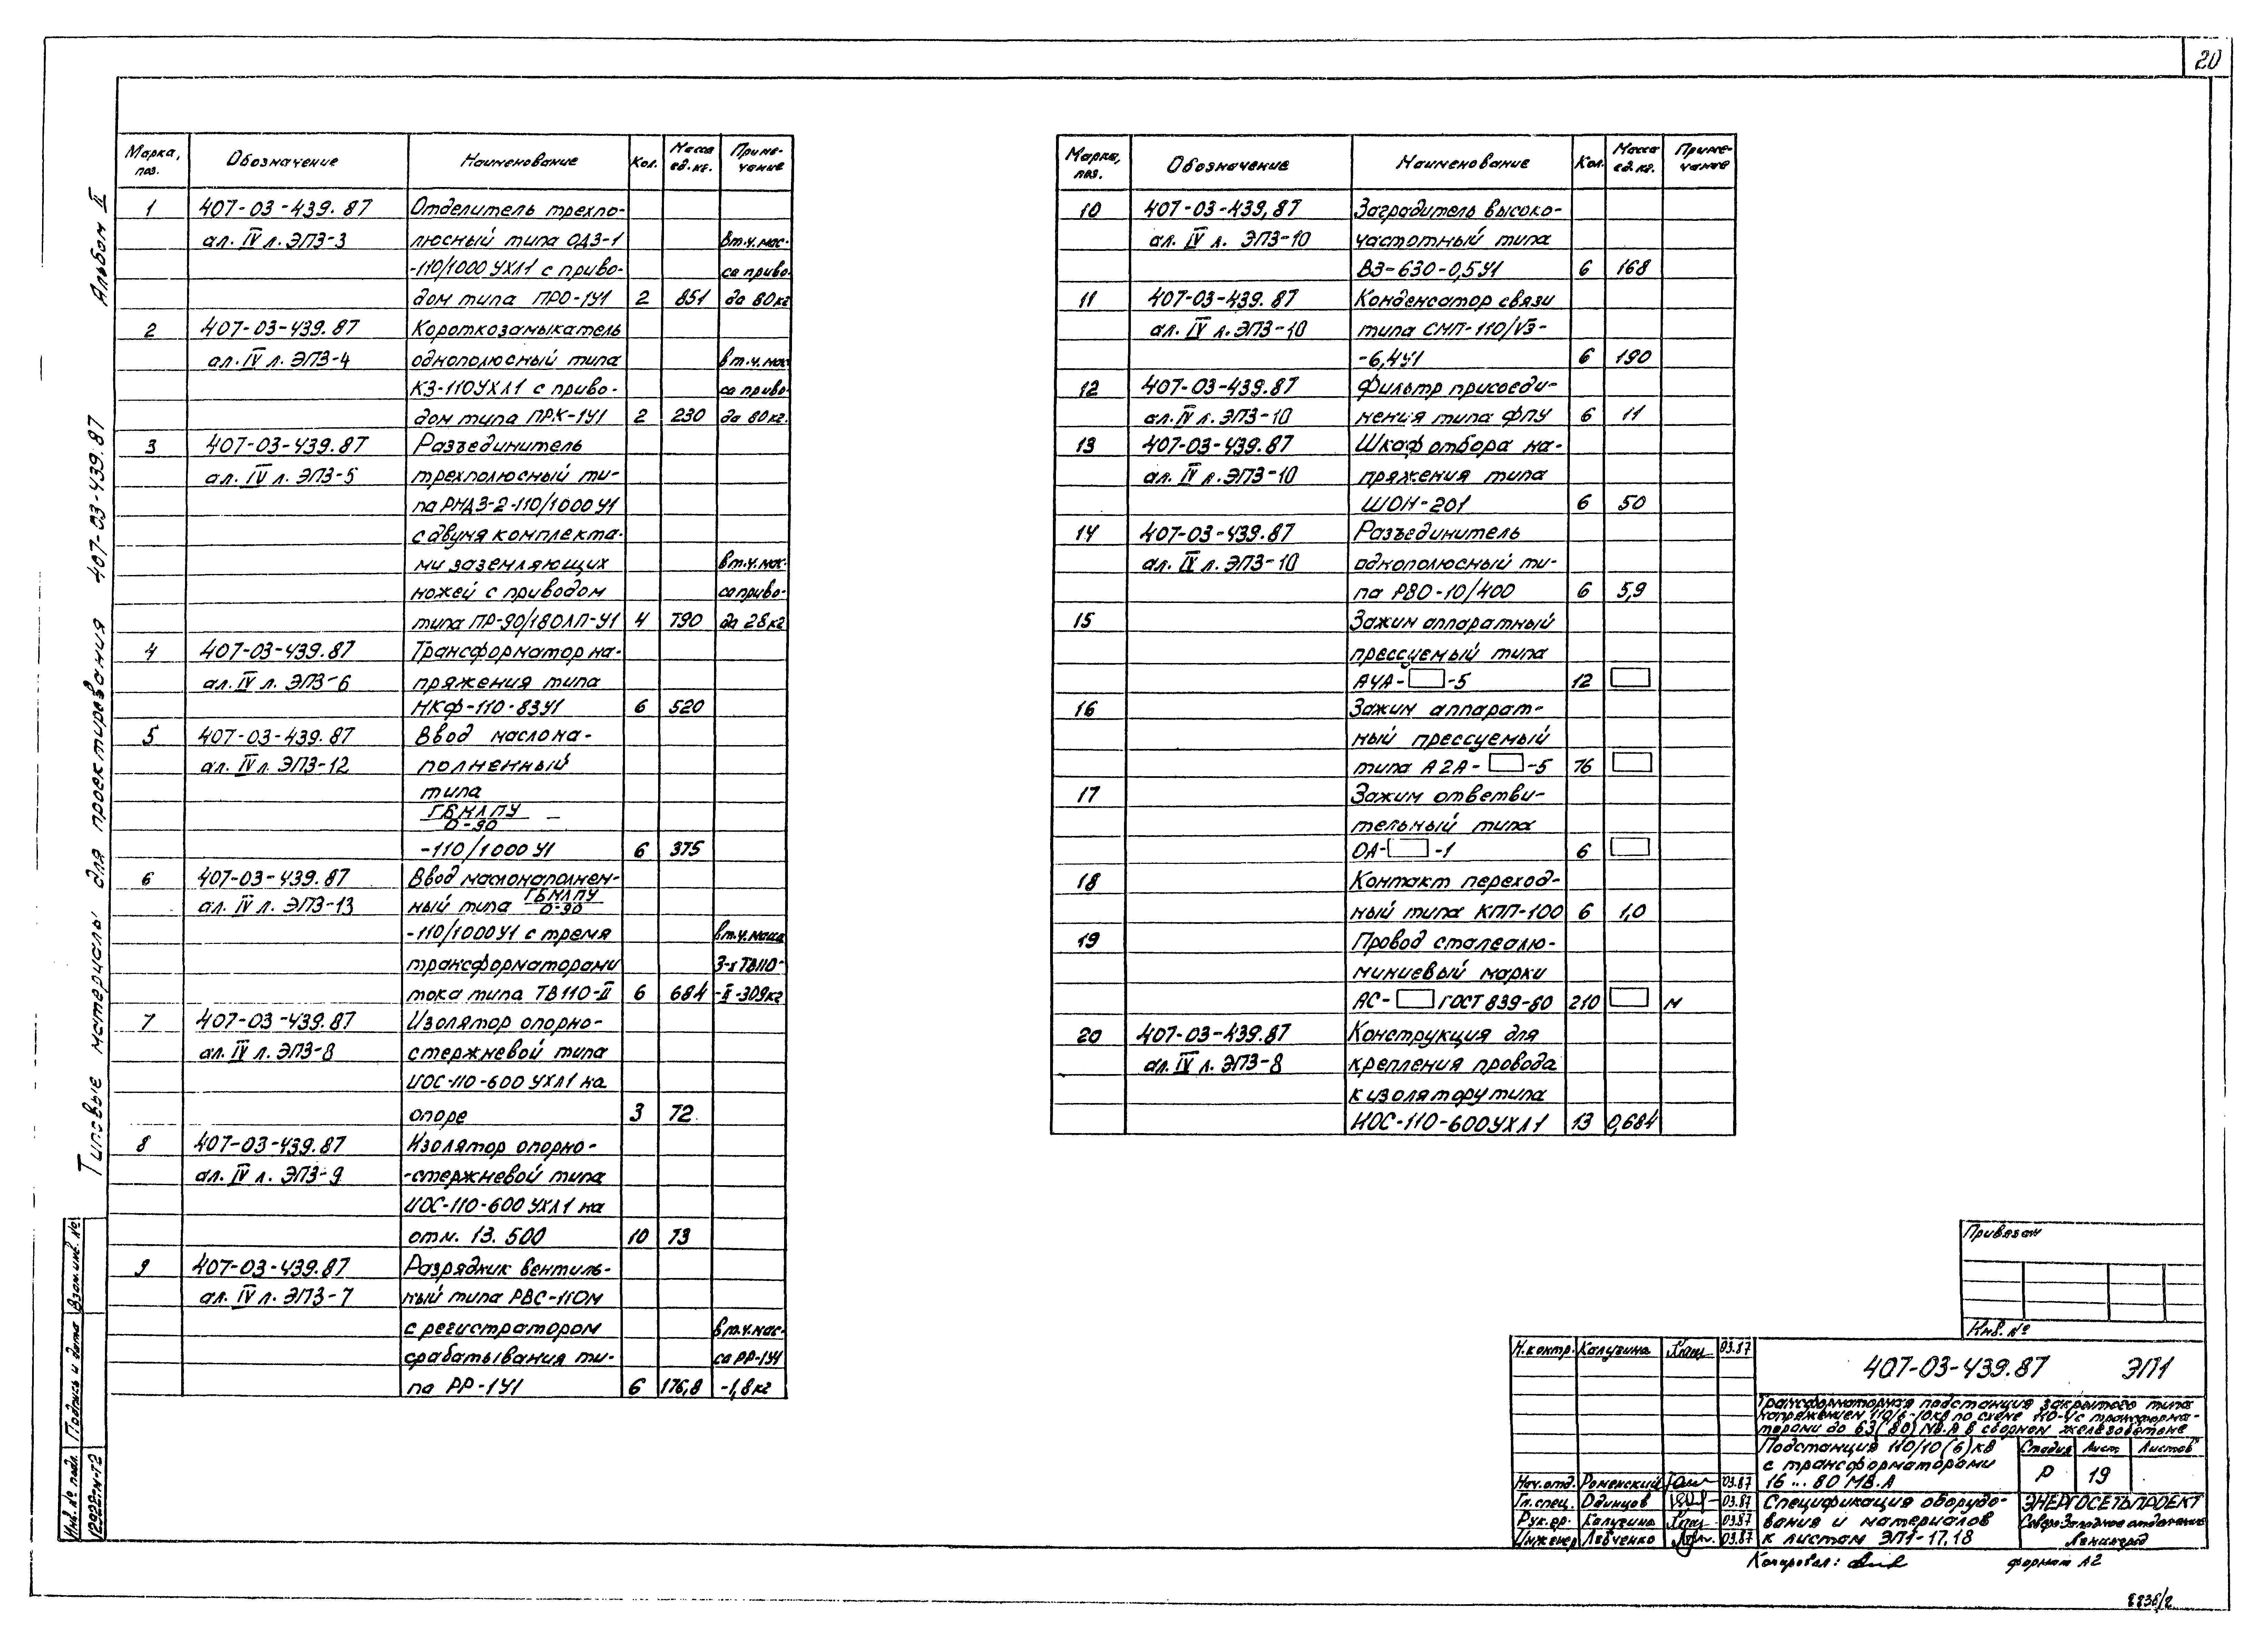 20
Альбом II
Типовые материалы для проектирования 407-03-439.87
Марка, поз. Обозначение Наименование Кол. Масса ед.кг. Примечание
1 407-03-439.87 Отделитель трехпо-
ал. IV л. ЭП3-3 люсный типа ОДЗ-1 в т.ч. мас-
-110/1000 УХЛ1 с приво- са приво-
дом типа ПРО-1У1 2 851 да 80кг
2 407-03-439.87 Короткозамыкатель
ал. IV л. ЭП3-4 однополюсный типа в т.ч. мас
КЗ-110УХЛ1 с приво- са приво-
дом типа ПРК-1У1 2 230 да 80кг.
3 407-03-439.87 Разъединитель
ал. IV л. ЭП3-5 трехполюсный ти-
па РНДЗ-2-110/1000 У1
с двумя комплекта-
ми заземляющих в т.ч. мас-
ножей с приводом са приво-
типа ПР-90/180ЛП-У1 4 790 да 28кг
4 407-03-439.87 Трансформатор на-
ал. IV л. ЭП3-6 пряжения типа
НКФ-110-83У1 6 520
5 407-03-439.87 Ввод маслона-
ал. IV л. ЭП3-12 полненный
типа
ГБМЛПУ
0-90
-110/1000 У1 6 375
6 407-03-439.87 Ввод маслонаполнен-
ал. IV л. ЭП3-13 ный типа ГБМЛПУ/0-90
-110/1000У1 с тремя в т.ч. масса
трансформаторами 3-х ТВ110-
тока типа ТВ110-II 6 684 -II-309кг
7 407-03-439.87 Изолятор опорно-
ал. IV л. ЭП3-8 стержневой типа
ИОС-110-600 УХЛ1 на
опоре 3 72
8 407-03-439.87 Изолятор опорно-
ал. IV л. ЭП3-9 -стержневой типа
ИОС-110-600 УХЛ1 на
отм. 13.500 10 73
9 407-03-439.87 Разрядник вентиль-
ал. IV л. ЭП3-7 ный типа РВС-110М
с регистратором в т.ч. мас-
срабатывания ти- са РР-1У1
па РР-1У1 6 176,8 -1,8кг
Марка, поз. Обозначение Наименование Кол. Масса ед.кг. Примечание
10 407-03-439,87 Заградитель высоко-
ал. IV л. ЭП3-10 частотный типа
ВЗ-630-0,5У1 6 168
11 407-03-439.87 Конденсатор связи
ал. IV л. ЭП3-10 типа СМП-110/√3-
-6,4У1 6 190
12 407-03-439.87 Фильтр присоеди-
ал. IV л. ЭП3-10 нения типа ФПУ 6 11
13 407-03-439.87 Шкаф отбора на-
ал. IV л. ЭП3-10 пряжения типа
ШОН-201 6 50
14 407-03-439.87 Разъединитель
ал. IV л. ЭП3-10 однополюсный ти-
па РВО-10/400 6 5,9
15 Зажим аппаратный
прессуемый типа
А4А- -5 12
16 Зажим аппарат-
ный прессуемый
типа А2А- -5 76
17 Зажим ответви-
тельный типа
ОА- -1 6
18 Контакт переход-
ный типа КПП-100 6 1,0
19 Провод сталеалю-
миниевый марки
АС- ГОСТ 839-80 210 м
20 407-03-439.87 Конструкция для
ал. IV л. ЭП3-8 крепления провода
к изолятору типа
ИОС-110-600УХЛ1 13 0,684
Привязан
Инв. №
Н.контр. Калугина 03.87
407-03-439.87 ЭП1
Трансформаторная подстанция закрытого типа
напряжением 110/6-10кВ по схеме 110-4 с трансформа-
торами до 63(80)МВ.А в сборном железобетоне
Подстанция 110/10(6)кВ
с трансформаторами
16...80 МВ.А
Стадия Лист Листов
Р 19
Нач.отд. Роменский 03.87
Гл.спец. Одинцов 03.87
Рук.гр. Калугина 03.87
Инженер Левченко 03.87
Спецификация оборудо-
вания и материалов
к листам ЭП1-17,18
ЭНЕРГОСЕТЬПРОЕКТ
Северо-Западное отделение
Ленинград
Копировал: формат А2
Инв.№ подл. Подпись и дата Взам.инв.№
12922тм-Т2